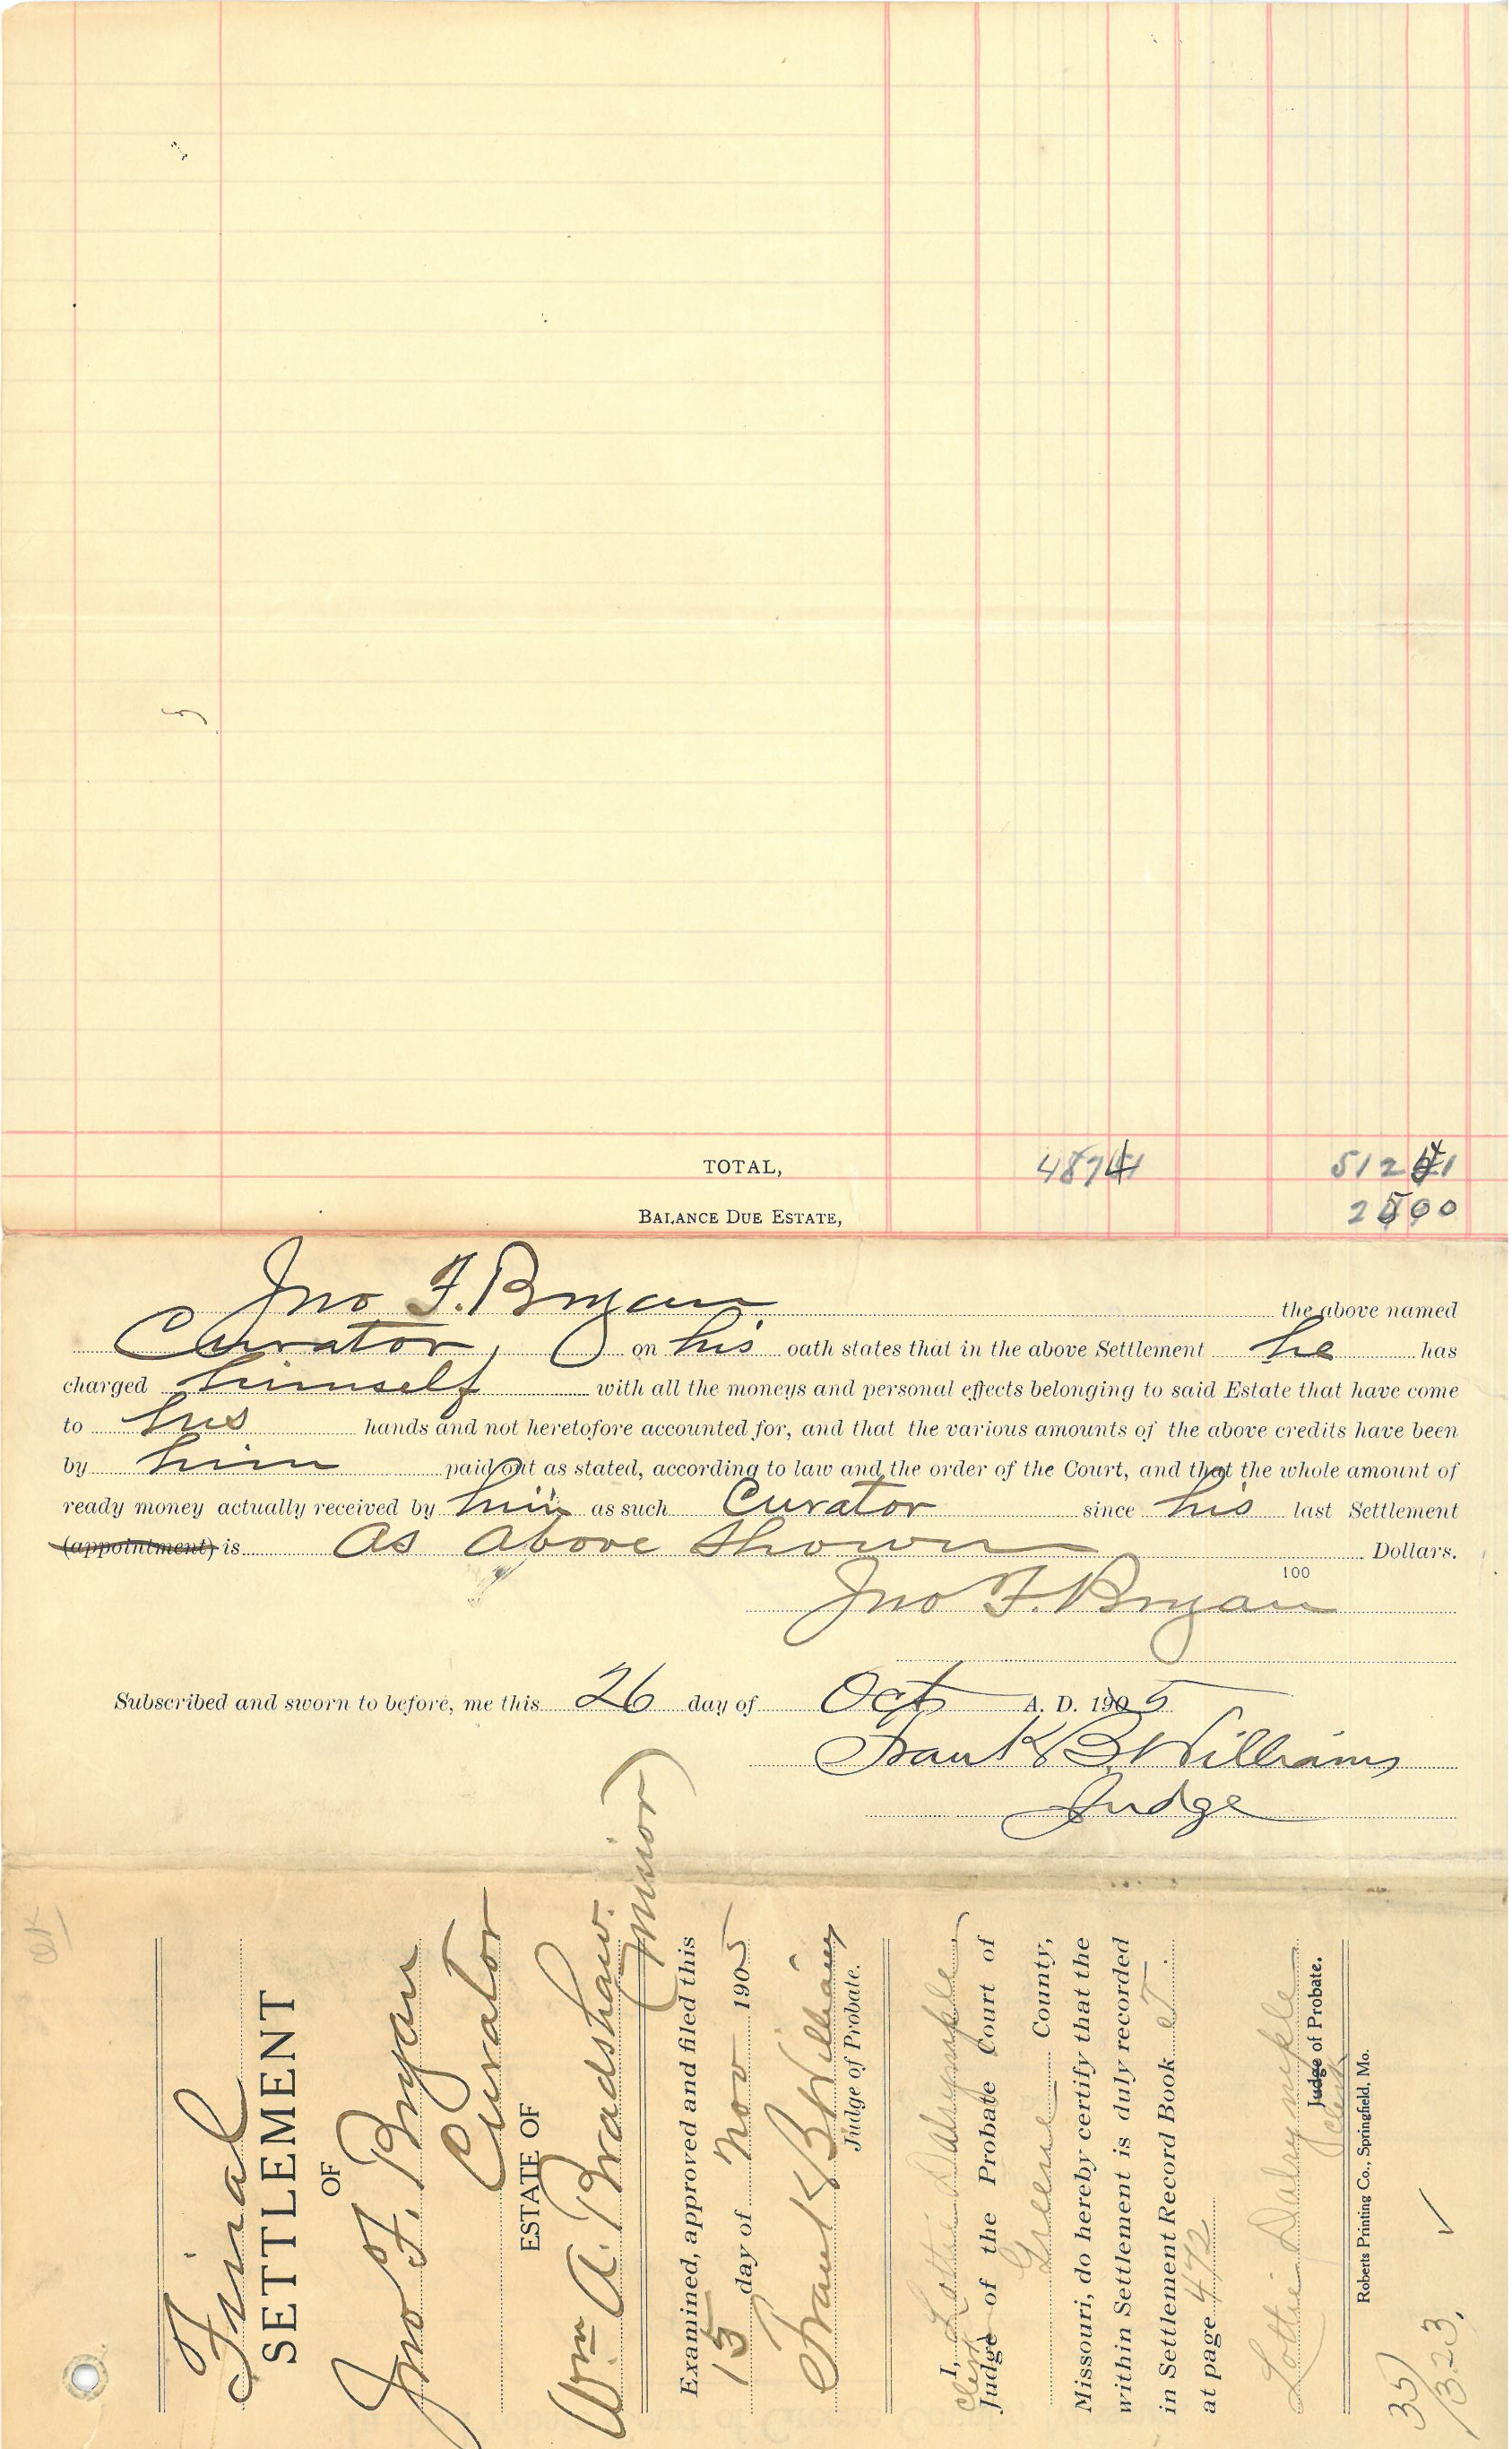 TOTAL, 487 41 512 41
BALANCE DUE ESTATE, 25 00
Jno F. Bryan the above named
Curator, on his oath states that in the above Settlement he has
charged himself with all the moneys and personal effects belonging to said Estate that have come
to his hands and not heretofore accounted for, and that the various amounts of the above credits have been
by him paid out as stated, according to law and the order of the Court, and that the whole amount of
ready money actually received by him as such Curator since his last Settlement
(appointment) is As above shown Dollars.
100
Jno F. Bryan
Subscribed and sworn to before, me this 26 day of Oct A. D. 1905
Frank B. Williams
Judge
OK
Final
SETTLEMENT
OF
Jno F. Bryan
Curator
ESTATE OF
Wm A. Bradshaw.
(minor)
Examined, approved and filed this
15 day of Nov 1905
Frank B Williams
Judge of Probate.
I, Lottie Dalrymple
Clerk
Judge of the Probate Court of
Greene County,
Missouri, do hereby certify that the
within Settlement is duly recorded
in Settlement Record Book T
at page 472
Lottie Dalrymple
Judge of Probate.
Clerk
Roberts Printing Co., Springfield, Mo.
35
1323.